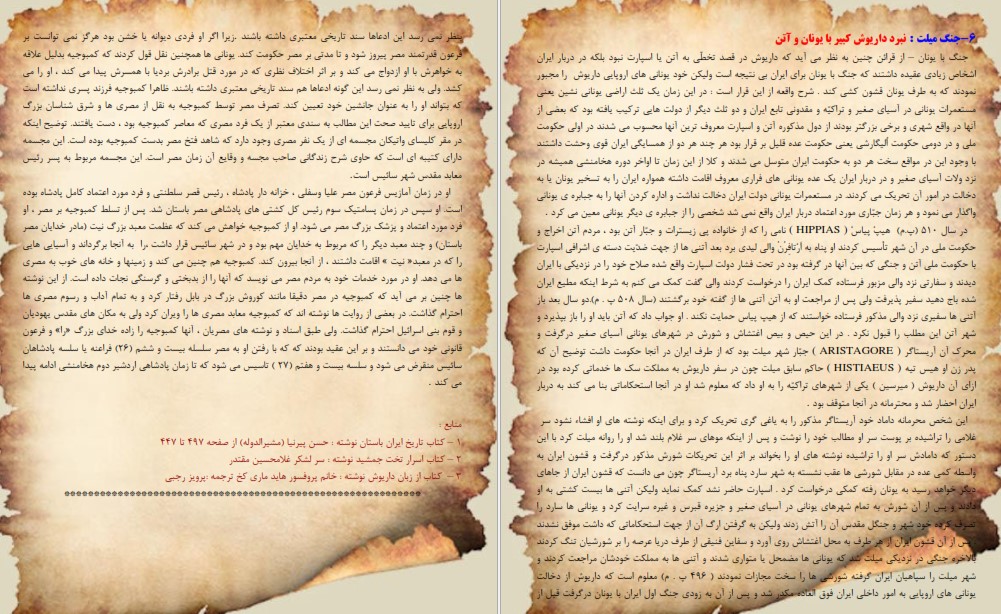 ۶-جنگ میلت : نبرد داریوش کبیر با یونان و آتن
جنگ با یونان – از قرائن چنین به نظر می آید که داریوش در قصد تخطّی به آتن یا اسپارت نبود بلکه در دربار ایران
اشخاص زیادی عقیده داشتند که جنگ با یونان برای ایران بی نتیجه است ولیکن خود یونانی های اروپایی داریوش را مجبور
نمودند که به طرف یونان قشون کشی کند . شرح واقعه از این قرار است : در این زمان یک ثلث اراضی یونانی نشین یعنی
مستعمرات یونانی در آسیای صغیر و تراکیّه و مقدونی تابع ایران و دو ثلث دیگر از دولت هایی ترکیب یافته بود که بعضی از
آنها در واقع شهری و برخی بزرگتر بودند از دول مذکوره آتن و اسپارت معروف ترین آنها محسوب می شدند در اولی حکومت
ملی و در دومی حکومت آلیگارشی یعنی حکومت عده قلیل بر قرار بود هر چند هر دو از همسایگی ایران قوی وحشت داشتند
با وجود این در مواقع سخت هر دو به حکومت ایران متوسل می شدند و کلا از این زمان تا اواخر دوره هخامنشی همیشه در
نزد ولات آسیای صغیر و در دربار ایران یک عده یونانی های فراری معروف اقامت داشته همواره ایران را به تسخیر یونان یا به
دخالت در امور آن تحریک می کردند. در مستعمرات یونانی دولت ایران دخالت نداشت و اداره کردن آنها را به جباره ی یونانی
واگذار می نمود و هر زمان جبّاری مورد اعتماد دربار ایران واقع نمی شد شخصی را از جباره ی دیگر یونانی معین می کرد .
در سال ۵۱۰ (پ.م) هیپ پیاس ( HIPPIAS ) نامی را که از خانواده پی زیسترات و جبّار آتن بود ، مردم آتن اخراج و
حکومت ملی در آن شهر تأسیس کردند او پناه به اَرتافِرْنْ والی لیدی برد بعد آتنی ها از جهت ضدّیت دسته ی اشرافی اسپارت
با حکومت ملی آتن و جنگی که بین آنها در گرفته بود در تحت فشار دولت اسپارت واقع شده صلاح خود را در نزدیکی با ایران
دیدند و سفارتی نزد والی مزبور فرستاده کمک ایران را درخواست کردند والی گفت کمک می کنم به شرط اینکه مطیع ایران
شده باج دهید سفیر پذیرفت ولی پس از مراجعت او به آتن آتنی ها از گفته خود برگشتند (سال ۵۰۸ پ . م).دو سال بعد باز
آتنی ها سفیری نزد والی مذکور فرستاده خواستند که از هیپ پیاس حمایت نکند . او جواب داد که آتن باید او را باز بپذیرد و
شهر آتن این مطلب را قبول نکرد . در این حیص و بیص اغتشاش و شورش در شهرهای یونانی آسیای صغیر درگرفت و
محرک آن آریستاگر ( ARISTAGORE ) جبّار شهر میلت بود که از طرف ایران در آنجا حکومت داشت توضیح آن که
پدر زن او هیس تیه ( HISTIAEUS ) حاکم سابق میلت چون در سفر داریوش به مملکت سک ها خدماتی کرده بود در
ازای آن داریوش ( میرسین ) یکی از شهرهای تراکیّه را به او داد که معلوم شد او در آنجا استحکاماتی بنا می کند به دربار
ایران احضار شد و محترمانه در آنجا متوقف بود .
این شخص محرمانه داماد خود آریستاگر مذکور را به یاغی گری تحریک کرد و برای اینکه نوشته های او افشاء نشود سر
غلامی را تراشیده بر پوست سر او مطالب خود را نوشت و پس از اینکه موهای سر غلام بلند شد او را روانه میلت کرد با این
دستور که دامادش سر او را تراشیده نوشته های او را بخواند بر اثر این تحریکات شورش مذکور درگرفت و قشون ایران به
واسطه کمی عده در مقابل شورشی ها عقب نشسته به شهر سارد پناه برد آریستاگر چون می دانست که قشون ایران از جاهای
دیگر خواهد رسید به یونان رفته کمکی درخواست کرد . اسپارت حاضر نشد کمک نماید ولیکن آتنی ها بیست کشتی به او
دادند و پس از آن شورش به تمام شهرهای یونانی در آسیای صغیر و جزیره قبرس و غیره سرایت کرد و یونانی ها سارد را
تصرف کرده خود شهر و جنگل مقدس آن را آتش زدند ولیکن به گرفتن ارگ آن از جهت استحکاماتی که داشت موفق نشدند
پس از آن قشون ایران از هر طرف به محل اغتشاش روی آورد و سفاین فنیقی از طرف دریا عرصه را بر شورشیان تنگ کردند
بالاخره جنگی در نزدیکی میلت شد که یونانی ها مضمحل یا متواری شدند و آتنی ها به مملکت خودشان مراجعت کردند و
شهر میلت را سپاهیان ایران گرفته شورشی ها را سخت مجازات نمودند ( ۴۹۶ پ . م) معلوم است که داریوش از دخالت
یونانی های اروپایی به امور داخلی ایران فوق العاده مکدر شد و پس از آن به زودی جنگ اول ایران با یونان درگرفت قبل از
بنظر نمی رسد این ادعاها سند تاریخی معتبری داشته باشند .زیرا اگر او فردی دیوانه یا خشن بود هرگز نمی توانست بر
فرعون قدرتمند مصر پیروز شود و تا مدتی بر مصر حکومت کند. یونانی ها همچنین نقل قول کردند که کمبوجیه بدلیل علاقه
به خواهرش با او ازدواج می کند و بر اثر اختلاف نظری که در مورد قتل برادرش بردیا با همسرش پیدا می کند ، او را می
کشد. ولی به نظر نمی رسد این گونه ادعاها هم سند تاریخی معتبری داشته باشند. ظاهرا کمبوجیه فرزند پسری نداشته است
که بتواند او را به عنوان جانشین خود تعیین کند. تصرف مصر توسط کمبوجیه به نقل از مصری ها و شرق شناسان بزرگ
اروپایی برای تایید صحت این مطالب به سندی معتبر از یک فرد مصری که معاصر کمبوجیه بود ، دست یافتند. توضیح اینکه
در مقر کلیسای واتیکان مجسمه ای از یک نفر مصری وجود دارد که شاهد فتح مصر بدست کمبوجیه بوده است. این مجسمه
دارای کتیبه ای است که حاوی شرح زندگانی صاحب مجسه و وقایع آن زمان مصر است. این مجسمه مربوط به پسر رئیس
معابد مقدس شهر سائیس است.
او در زمان آمازیس فرعون مصر علیا وسفلی ، خزانه دار پادشاه ، رئیس قصر سلطنتی و فرد مورد اعتماد کامل پادشاه بوده
است. او سپس در زمان پسامتیک سوم رئیس کل کشتی های پادشاهی مصر باستان شد. پس از تسلط کمبوجیه بر مصر ، او
فرد مورد اعتماد و پزشک بزرگ مصر می شود. او از کمبوجیه خواهش می کند که عظمت معبد بزرگ نیت (مادر خدایان مصر
باستان) و چند معبد دیگر را که مربوط به خدایان مهم بود و در شهر سائیس قرار داشت ،را به آنجا برگرداند و آسیایی هایی
را که در معبد« نیت » اقامت داشتند ، از آنجا بیرون کند. کمبوجیه هم چنین می کند و زمینها و خانه های خوب به مصری
ها می دهد. او در مورد خدمات خود به مردم مصر می نویسد که آنها را از بدبختی و گرسنگی نجات داده است. از این نوشته
ها چنین بر می آید که کمبوجیه در مصر دقیقا مانند کوروش بزرگ در بابل رفتار کرد و به تمام آداب و رسوم مصری ها
احترام گذاشت. در بعضی از روایت ها نوشته اند که کمبوجیه معابد مصری ها را ویران کرد ولی به مکان های مقدس یهودیان
و قوم بنی اسرائیل احترام گذاشت. ولی طبق اسناد و نوشته های مصریان ، آنها کمبوجیه را زاده خدای بزرگ «را» و فرعون
قانونی خود می دانستند و بر این عقید بودند که که با رفتن او به مصر سلسله بیست و ششم (۲۶) فراعنه یا سلسه پادشاهان
سائیس منقرض می شود و سلسه بیست و هفتم (۲۷ ) تاسیس می شود که تا زمان پادشاهی اردشیر دوم هخامنشی ادامه پیدا
می کند .
منابع :
۱ – کتاب تاریخ ایران باستان نوشته : حسن پیرنیا (مشیرالدوله) از صفحه ۴۹۷ تا ۴۴۷
۲ – کتاب اسرار تخت جمشید نوشته : سر لشکر غلامحسین مقتدر
۳ – کتاب از زبان داریوش نوشته : خانم پروفسور هاید ماری کخ ترجمه :پرویز رجبی
************************************************************